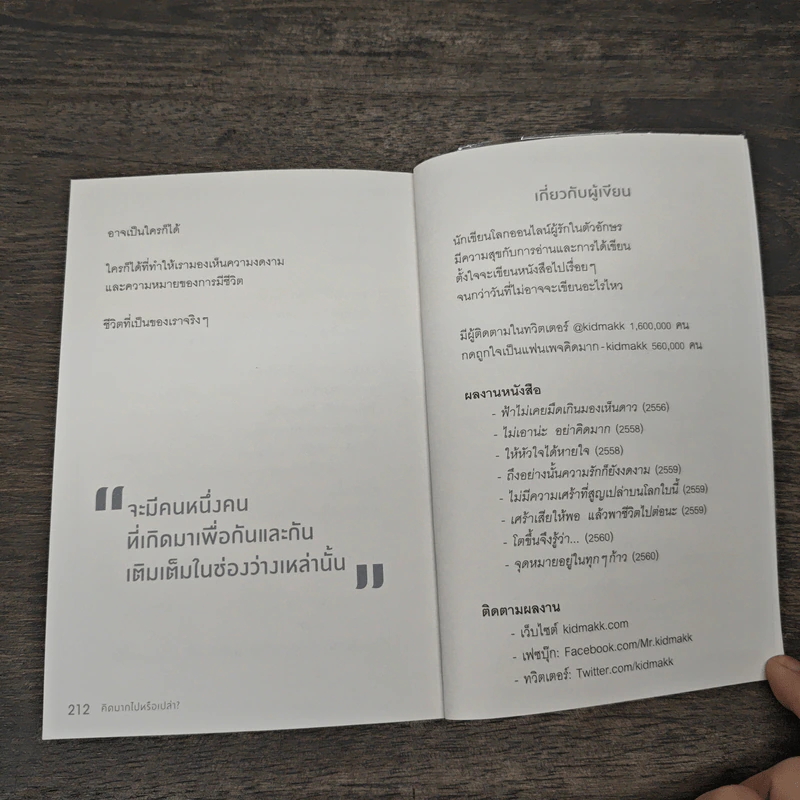 อาจเป็นใครก็ได้
ใครก็ได้ที่ทำให้เรามองเห็นความงดงาม
และความหมายของการมีชีวิต
ชีวิตที่เป็นของเราจริงๆ
“จะมีคนหนึ่งคน
ที่เกิดมาเพื่อกันและกัน
เติมเต็มในช่องว่างเหล่านั้น”
212 คิดมากไปหรือเปล่า?
เกี่ยวกับผู้เขียน
นักเขียนโลกออนไลน์ผู้รักในตัวอักษร
มีความสุขกับการอ่านและการได้เขียน
ตั้งใจจะเขียนหนังสือไปเรื่อยๆ
จนกว่าวันที่ไม่อาจจะเขียนอะไรไหว
มีผู้ติดตามในทวิตเตอร์ @kidmakk 1,600,000 คน
กดถูกใจเป็นแฟนเพจคิดมาก - kidmakk 560,000 คน
ผลงานหนังสือ
- ฟ้าไม่เคยมืดเกินมองเห็นดาว (2556)
- ไม่เอาน่ะ อย่าคิดมาก (2558)
- ให้หัวใจได้หายใจ (2558)
- ถึงอย่างนั้นความรักก็ยังงดงาม (2559)
- ไม่มีความเศร้าที่สูญเปล่าบนโลกใบนี้ (2559)
- เศร้าเสียให้พอ แล้วพาชีวิตไปต่อนะ (2559)
- โตขึ้นจึงรู้ว่า... (2560)
- จุดหมายอยู่ในทุกๆก้าว (2560)
ติดตามผลงาน
- เว็บไซต์ kidmakk.com
- เฟซบุ๊ก: Facebook.com/Mr.kidmakk
- ทวิตเตอร์: Twitter.com/kidmakk